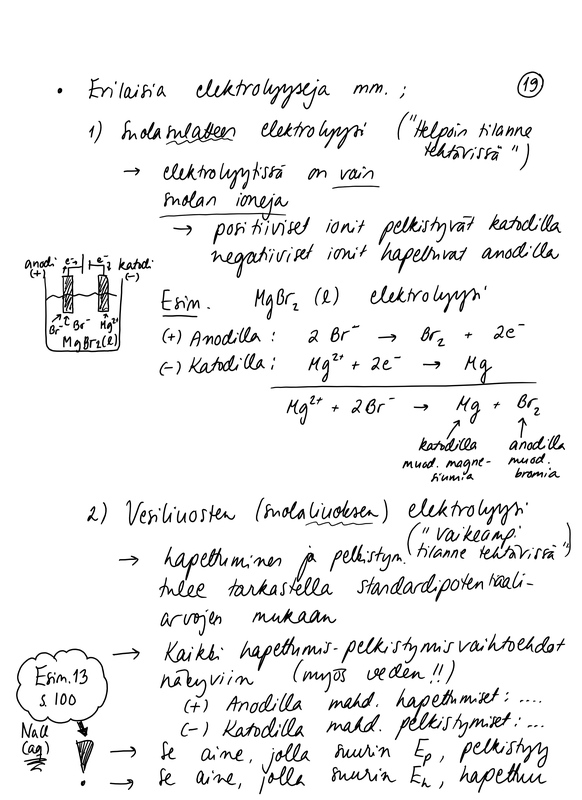 19
• Erilaisia elektrolyysejä mm. ;
1) Suolasulatteen elektrolyysi ("Helpoin tilanne
tehtävissä")
→ elektrolyytissä on vain
suolan ioneja
→ positiiviset ionit pelkistyvät katodilla
negatiiviset ionit hapettuvat anodilla
anodi (+) e⁻ e⁻ katodi (-)
Br⁻ Br⁻ Mg²⁺
MgBr₂(l)
Esim. MgBr₂ (l) elektrolyysi
(+) Anodilla : 2 Br⁻ → Br₂ + 2e⁻
(-) Katodilla : Mg²⁺ + 2e⁻ → Mg
Mg²⁺ + 2Br⁻ → Mg + Br₂
katodilla
muod. magne-
siumia
anodilla
muod.
bromia
2) Vesiliuosten (suolaliuoksen) elektrolyysi
("Vaikeampi
tilanne tehtävissä")
→ hapettuminen ja pelkistym.
tulee tarkastella standardipotentiaali-
arvojen mukaan
→ Kaikki hapettumis-pelkistymisvaihtoehdot
näkyviin (myös veden !!)
(+) Anodilla mahd. hapettumiset : ....
(-) Katodilla mahd. pelkistymiset : ...
Esim. 13
s. 100
NaCl
(aq)
→ Se aine, jolla suurin Ep, pelkistyy
→ Se aine, jolla suurin Eh, hapettuu